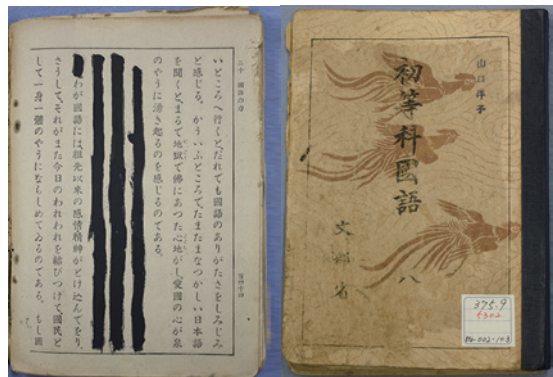 二十 國語の力
百四十四
いところへ行くと、だれでも國語のありがたさをしみじみ
と感じる。かういふところで、たまたまなつかしい日本語
を聞くと、まるで地獄で佛にあつた心地がし、愛國の心が泉
のやうに湧き起るのを感じるのである。
わが國語には、祖先以來の感情・精神がとけ込んでをり、
さうして、それがまた今日のわれわれを結びつけて、國民と
して一身一體のやうにならしめてゐるのである。もし國
初等科國語 八
文部省
375.9